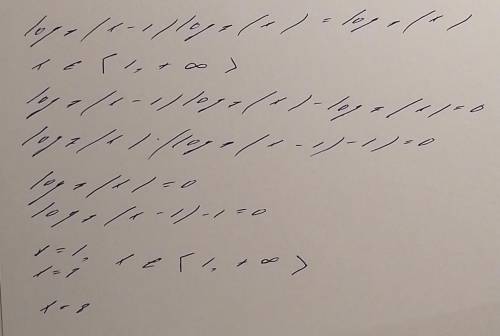 log₇(x-1)log₇(x)=log₇(x)
x ∈ ⟨1, +∞⟩
log₇(x-1)log₇(x)-log₇(x)=0
log₇(x)·(log₇(x-1)-1)=0
log₇(x)=0
log₇(x-1)-1=0
x=1,
x=8 x ∈ ⟨1, +∞⟩
x=8